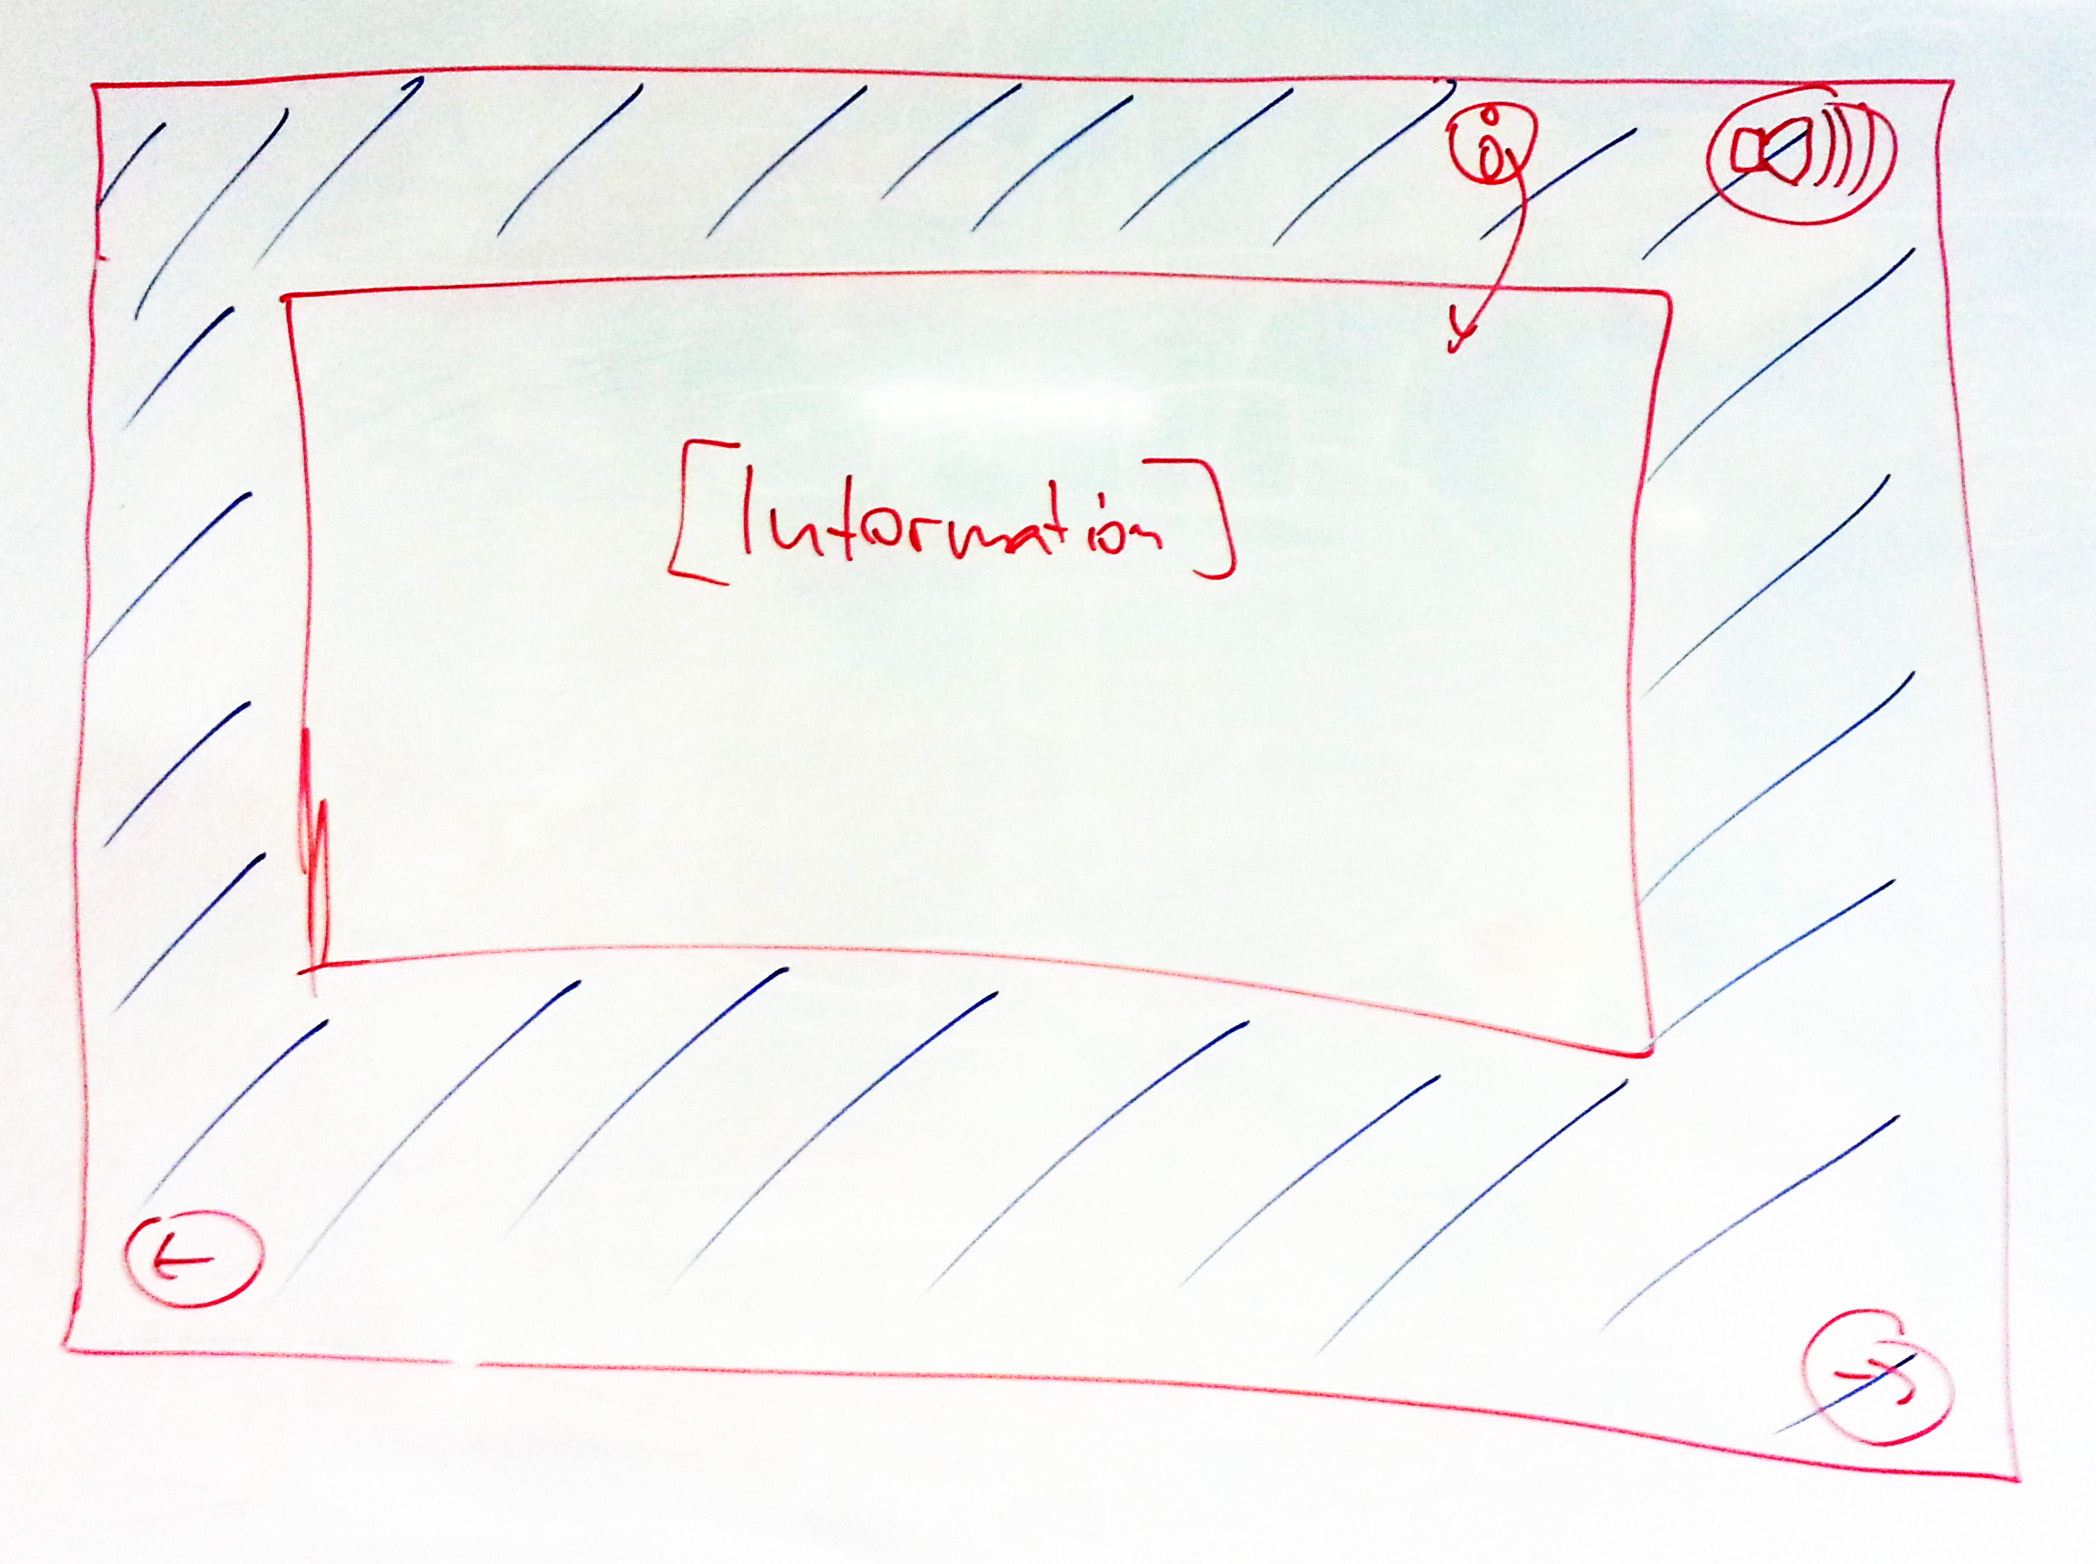 i
[Information]